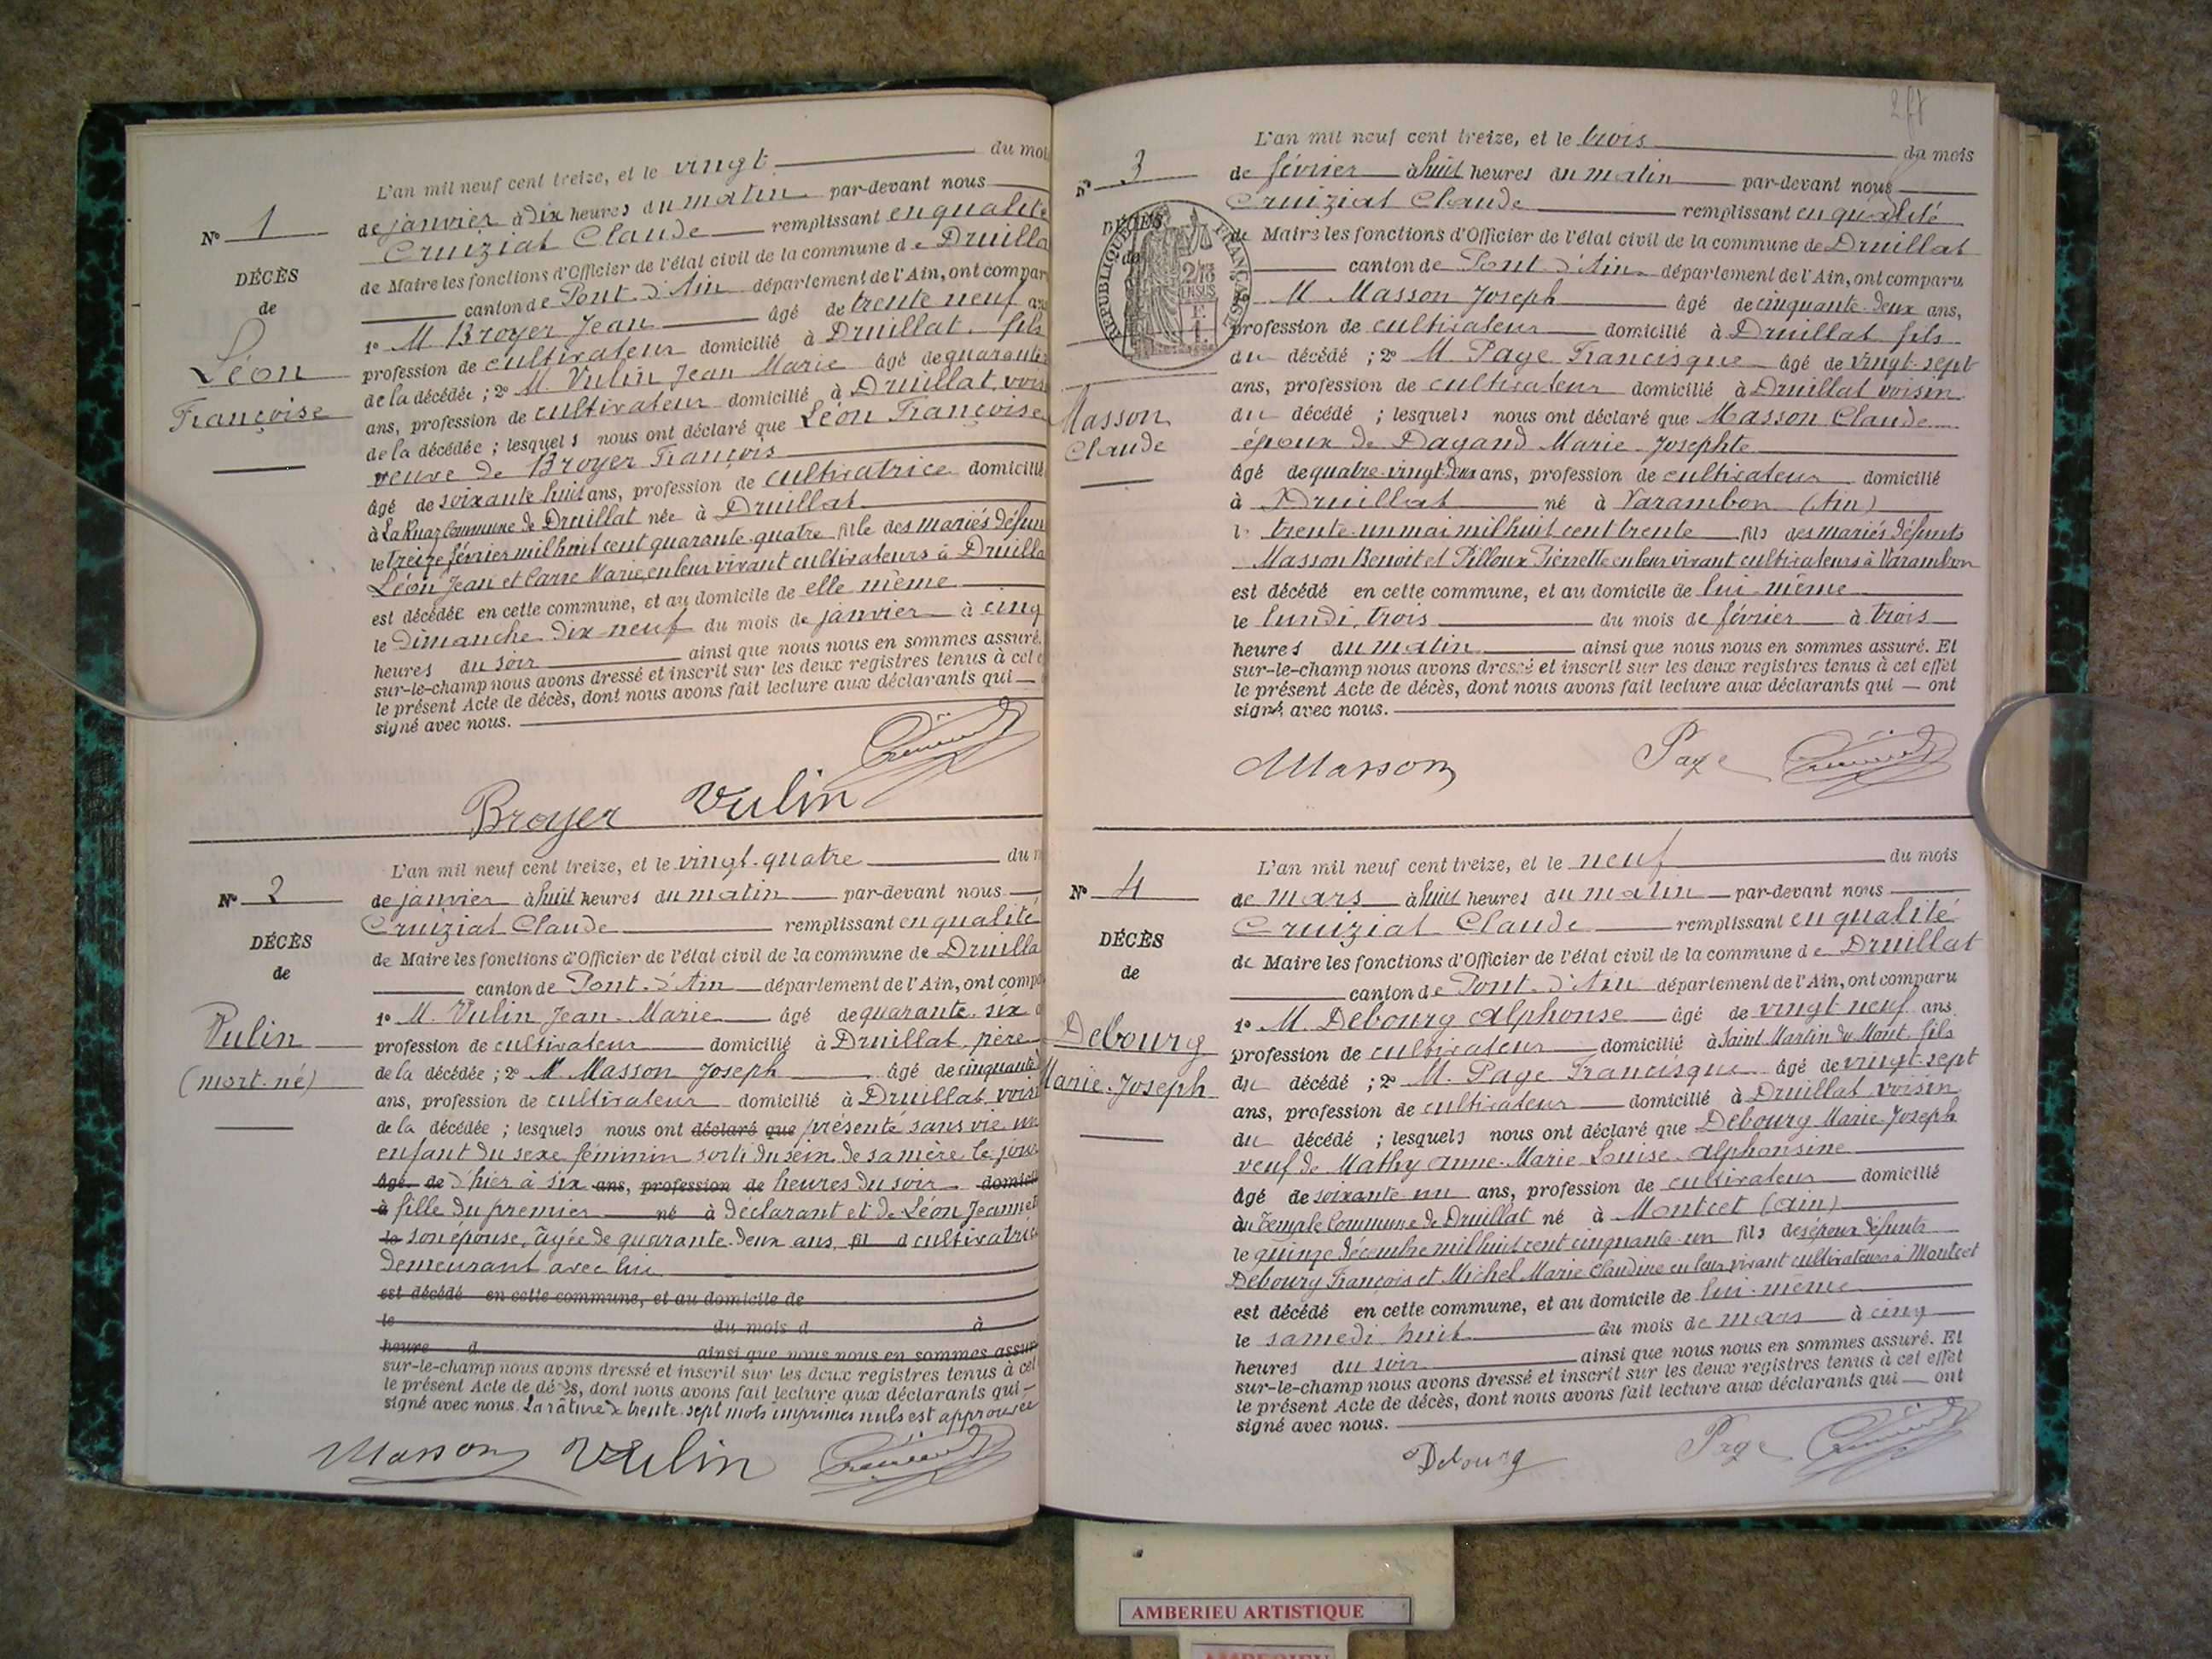 L'an mil neuf cent treize, et le vingt du mois
N° 1
de janvier à dix heures du matin par-devant nous
Cruiziat Claude remplissant en qualité
DÉCÈS
de Maire les fonctions d'Officier de l'état civil de la commune de Druilla
de
canton de Pont-d'Ain département de l'Ain, ont compar
1° M Broyer Jean âgé de trente neuf ans
Léon
profession de cultivateur domicilié à Druillat, fils
Françoise
de la décédée ; 2° M. Vulin Jean Marie âgé de quarante
ans, profession de cultivateur domicilié à Druillat, vois
de la décédée ; lesquels nous ont déclaré que Léon Françoise
veuve de Broyer François
âgé de soixante huit ans, profession de cultivatrice domicilié
à La Ruaz Commune de Druillat née à Druillat
le treize février mil huit cent quarante-quatre fille des mariés défun
Léon Jean et Carre Marie, en leur vivant cultivateurs à Druilla
est décédée en cette commune, et au domicile de elle même
le Dimanche dix-neuf du mois de janvier à cinq
heures du soir ainsi que nous nous en sommes assuré.
sur-le-champ nous avons dressé et inscrit sur les deux registres tenus à cet e
le présent Acte de décès, dont nous avons fait lecture aux déclarants qui
signé avec nous.
Broyer Vulin
L'an mil neuf cent treize, et le vingt-quatre du m
N° 2
de janvier à huit heures du matin par-devant nous
Cruiziat Claude remplissant en qualité
DÉCÈS
de Maire les fonctions d'Officier de l'état civil de la commune de Druilla
de
canton de Pont-d'Ain département de l'Ain, ont compa
1° M. Vulin Jean-Marie âgé de quarante-six a
Vulin
profession de cultivateur domicilié à Druillat, père
(mort-né)
de la décédée ; 2° M. Masson Joseph âgé de cinquante
ans, profession de cultivateur domicilié à Druillat, voisi
de la décédée ; lesquels nous ont déclaré que présenté sans vie un
enfant du sexe féminin sorti du sein de sa mère le jour
âgé de d'hier à six ans, profession de heures du soir domicil
à fille du premier né à déclarant et de Léon Jeannet
le son épouse, âgée de quarante-deux ans, fil d cultivatric
demeurant avec lui
est décédé en cette commune, et au domicile de
le du mois d à
heure d ainsi que nous nous en sommes assur
sur-le-champ nous avons dressé et inscrit sur les deux registres tenus à cet
le présent Acte de décès, dont nous avons fait lecture aux déclarants qui
signé avec nous. La rature de trente-sept mots imprimés nuls est approuvée
Masson Vulin
L'an mil neuf cent treize, et le trois du mois
N° 3
de février à huit heures du matin par-devant nous
Cruiziat Claude remplissant en qualité
DÉCÈS
RÉPUBLIQUE FRANÇAISE
de Maire les fonctions d'Officier de l'état civil de la commune de Druillat
de
canton de Pont-d'Ain département de l'Ain, ont comparu
M. Masson Joseph âgé de cinquante-deux ans,
profession de cultivateur domicilié à Druillat fils
du décédé ; 2° M. Page Francisque âgé de vingt-sept
ans, profession de cultivateur domicilié à Druillat voisin
Masson
du décédé ; lesquels nous ont déclaré que Masson Claude
Claude
époux de Dagand Marie-Josephte
âgé de quatre-vingt-deux ans, profession de cultivateur domicilié
à Druillat né à Varambon (Ain)
le trente-un mai mil huit cent trente fils des mariés défunts
Masson Benoit et Pilloux Pierrette en leur vivant cultivateurs à Varambon
est décédé en cette commune, et au domicile de lui-même
le lundi, trois du mois de février à trois
heures du matin ainsi que nous nous en sommes assuré. Et
sur-le-champ nous avons dressé et inscrit sur les deux registres tenus à cet effet
le présent Acte de décès, dont nous avons fait lecture aux déclarants qui — ont
signé avec nous.
Masson Page
L'an mil neuf cent treize, et le neuf du mois
N° 4
de mars à huit heures du matin par-devant nous
Cruiziat Claude remplissant en qualité
DÉCÈS
de Maire les fonctions d'Officier de l'état civil de la commune de Druillat
de
canton de Pont-d'Ain département de l'Ain, ont comparu
1° M. Debourg Alphonse âgé de vingt neuf ans
Debourg
profession de cultivateur domicilié à Saint Martin du Mont, fils
Marie-Joseph
du décédé ; 2° M. Page Francisque âgé de vingt-sept
ans, profession de cultivateur domicilié à Druillat voisin
du décédé ; lesquels nous ont déclaré que Debourg Marie-Joseph
veuf de Mathy Anne-Marie Louise-Alphonsine
âgé de soixante un ans, profession de cultivateur domicilié
au Temple Commune de Druillat né à Montcet (Ain)
le quinze décembre mil huit cent cinquante-un fils des époux défunts
Debourg François et Michel Marie Claudine en leur vivant cultivateurs à Montcet
est décédé en cette commune, et au domicile de lui-même
le samedi huit du mois de mars à cinq
heures du soir ainsi que nous nous en sommes assuré. Et
sur-le-champ nous avons dressé et inscrit sur les deux registres tenus à cet effet
le présent Acte de décès, dont nous avons fait lecture aux déclarants qui — ont
signé avec nous.
Debourg Page
AMBERIEU ARTISTIQUE
AMBERIEU